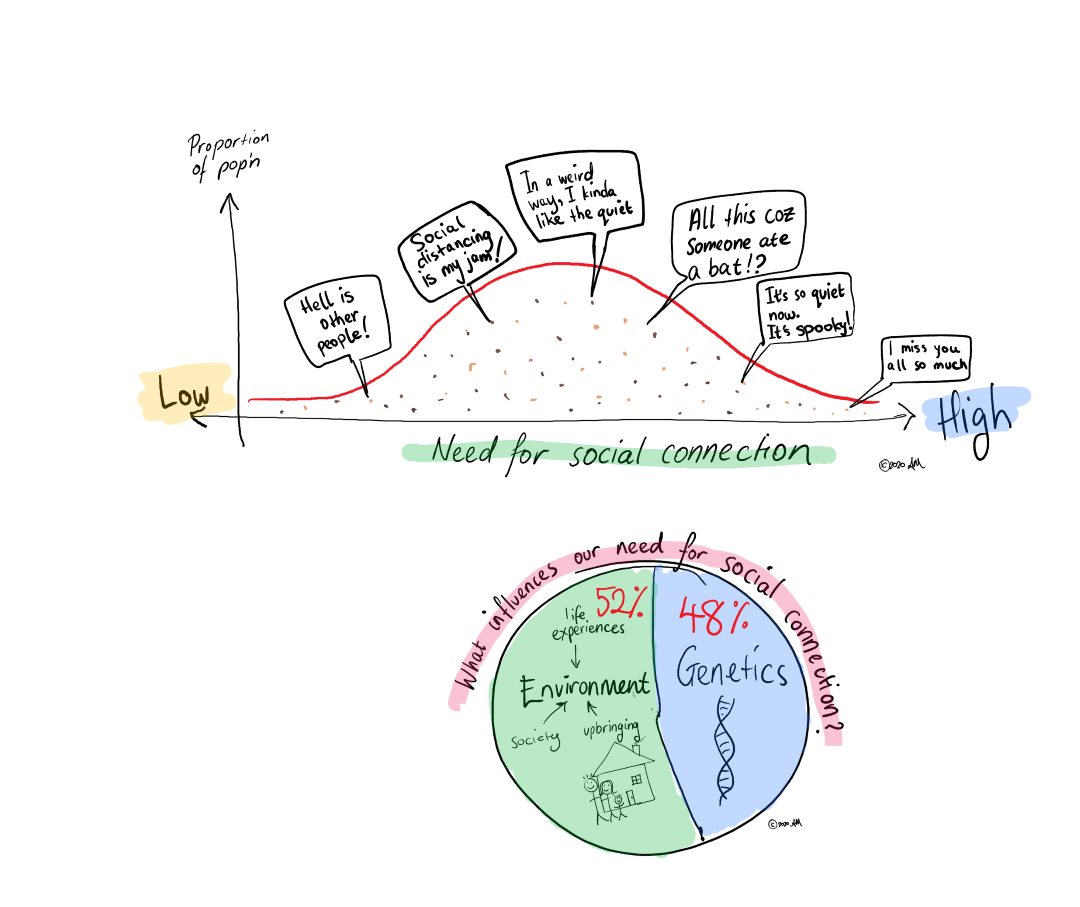 Proportion
of pop'n
In a weird
way, I kinda
like the quiet
Social
distancing
is my jam!
All this coz
someone ate
a bat!?
Hell is
other
people!
It's so quiet
now.
It's spooky!
I miss you
all so much
Low
High
Need for social connection
©2020 AM
What influences our need for social connection?
52%
life
experiences
Environment
society
upbringing
48%
Genetics
©2020 AM